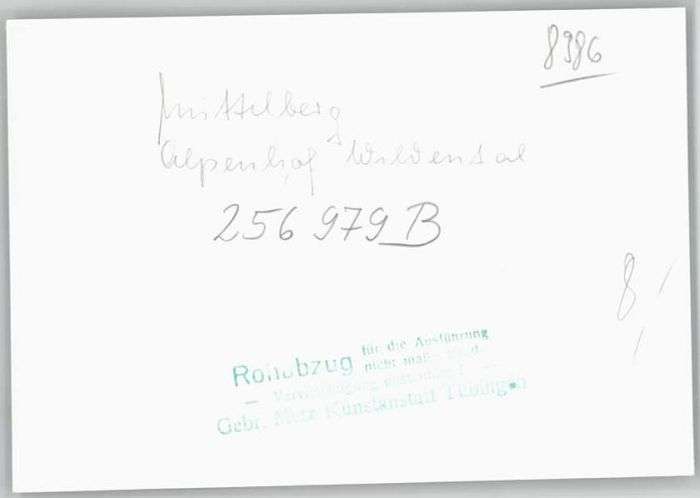 8986
Mittelberg
Alpenhof Wildental
256 979 B
8,
Rohabzug für die Ausführung
nicht maßgebend
Gebr. Metz Kunstanstalt Tübingen